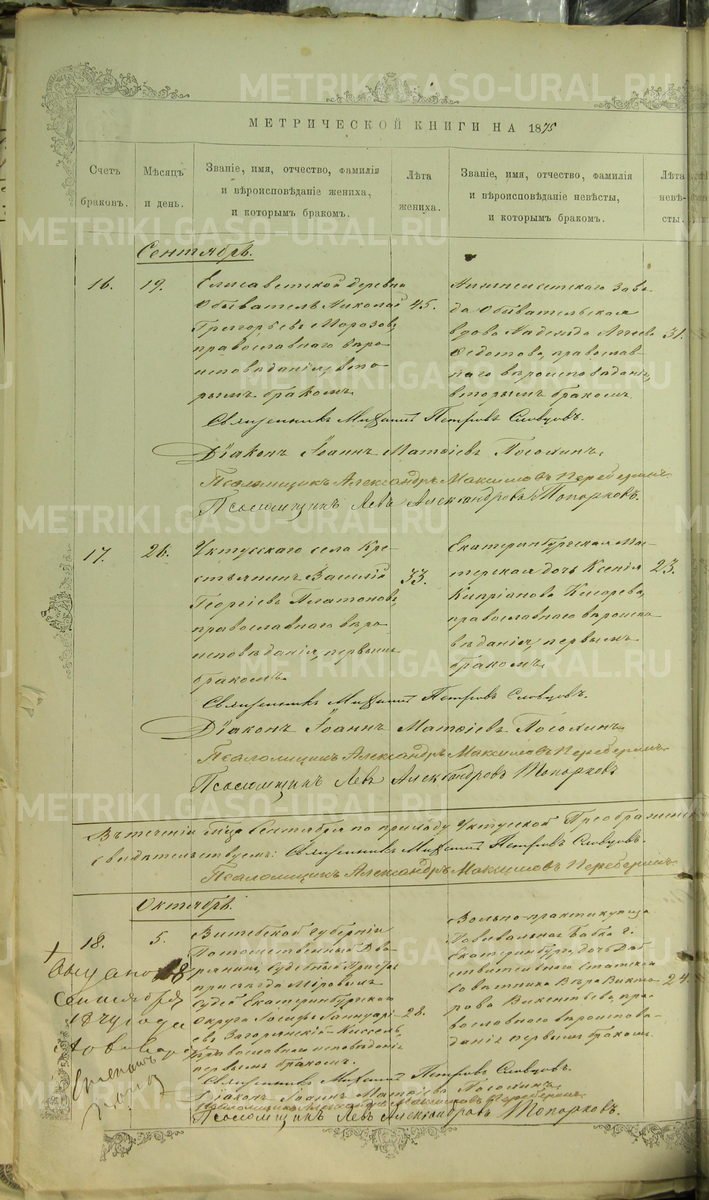 METRIKI.GASO-URAL.RU
МЕТРИЧЕСКОЙ КНИГИ НА 1875
Счетъ браковъ.
Мѣсяцъ и день.
Званіе, имя, отчество, фамилія
и вѣроисповѣданіе жениха,
и которымъ бракомъ.
Лѣта жениха.
Званіе, имя, отчество, фамилія
и вѣроисповѣданіе невѣсты,
и которымъ бракомъ.
Лѣта невѣ-
сты.
Сентябрь.
16.
19.
Елисаветской деревни
Обыватель Николай
Григорьевъ Морозовъ,
православнаго вѣро
исповѣданія, вто-
рымъ бракомъ.
45.
Нижнеисетскаго заво-
да обывательская
вдова Надежда
Федотова, православ-
наго вѣроисповѣданія,
вторымъ бракомъ.
31.
Священникъ Михаилъ Петровъ Словцовъ.
Діаконъ Іоаннъ Матѳіевъ
Псаломщикъ Александръ Максимовъ Переберинъ
Псаломщикъ Левъ Александровъ Топорковъ.
17.
26.
Уктусскаго села Кре-
стьянинъ Василій
Георгіевъ Платоновъ,
православнаго вѣро
исповѣданія, первымъ
бракомъ.
33.
Екатеринбургская Ма-
стерская дочь Ксенія
Кипріанова
православнаго вѣроиспо
вѣданія, первымъ
бракомъ.
23.
Священникъ Михаилъ Петровъ Словцовъ.
Діаконъ Іоаннъ Матѳіевъ
Псаломщикъ Александръ Максимовъ Переберинъ
Псаломщикъ Левъ Александровъ Топорковъ
Въ теченіи м-ца Сентября по приходу Уктусской Преображен
свидѣтельствуемъ: Священникъ Михаилъ Петровъ Словцовъ.
Псаломщикъ Александръ Максимовъ Переберинъ
Октябрь.
18.
5.
Витебской Губерніи
Потомственный Дво-
рянинъ, Судебный Приста
при съѣздѣ Мировыхъ
Судей Екатеринбургскаго
Округа Іосифъ
въ Загорянскій-Киссель,
православнаго исповѣданія
первымъ бракомъ.
28.
Вольно-практикующая
Повивальная Бабка г.
Екатеринбурга, дочь Дѣй
ствительнаго Статскаго
Совѣтника Вѣра Викто-
рова Викентьева, пра-
вославнаго вѣроисповѣ-
данія первымъ бракомъ.
24.
18
Сентября
года
Священникъ Михаилъ Петровъ Словцовъ.
Діаконъ Іоаннъ Матѳіевъ
Псаломщикъ Александръ Максимовъ Переберинъ
Псаломщикъ Левъ Александровъ Топорковъ.